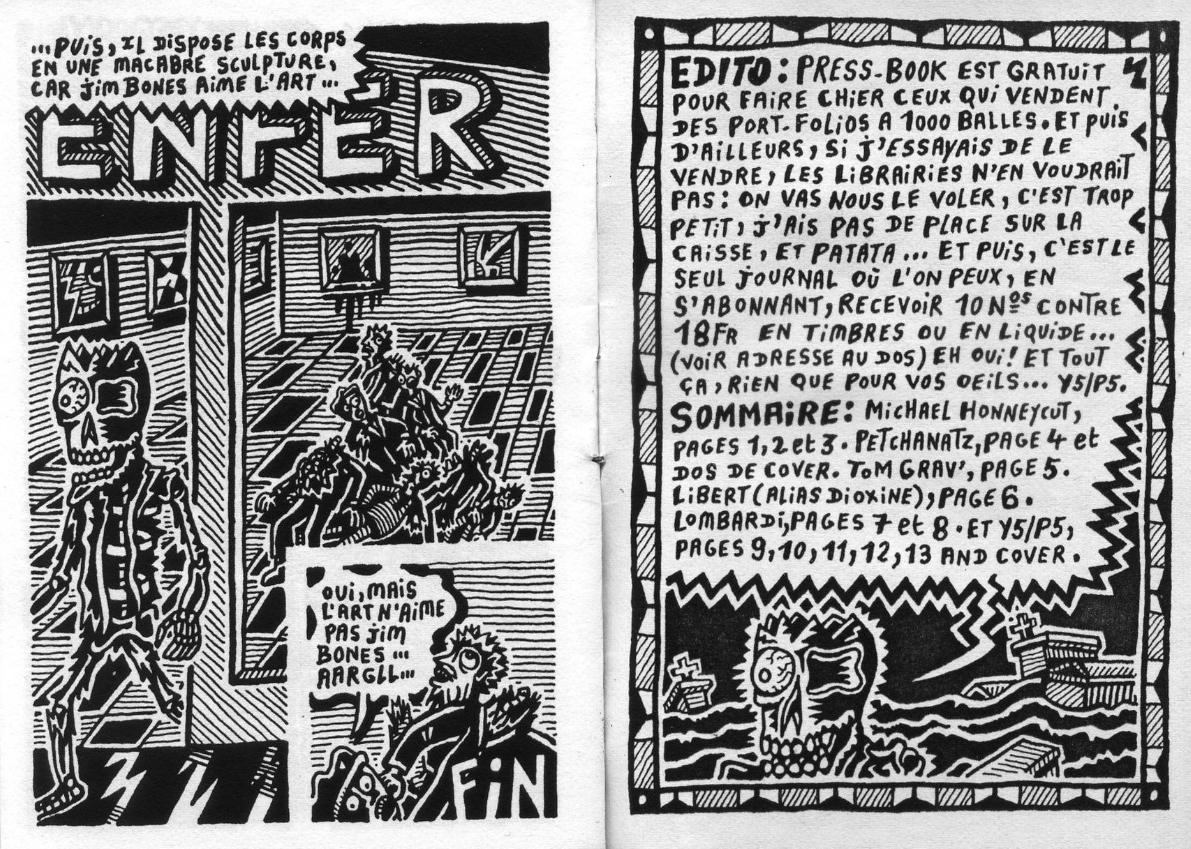 ...PUIS, IL DISPOSE LES CORPS
EN UNE MACABRE SCULPTURE,
CAR JIM BONES AIME L'ART...
ENFER
OUI, MAIS
L'ART N'AIME
PAS JIM
BONES...
AARGLL...
FIN
EDITO: PRESS-BOOK EST GRATUIT
POUR FAIRE CHIER CEUX QUI VENDENT
DES PORT-FOLIOS A 1000 BALLES. ET PUIS
D'AILLEURS, SI J'ESSAYAIS DE LE
VENDRE, LES LIBRAIRIES N'EN VOUDRAIT
PAS: ON VAS NOUS LE VOLER, C'EST TROP
PETIT, J'AIS PAS DE PLACE SUR LA
CAISSE, ET PATATA... ET PUIS, C'EST LE
SEUL JOURNAL OÙ L'ON PEUX, EN
S'ABONNANT, RECEVOIR 10 Nos CONTRE
18FR EN TIMBRES OU EN LIQUIDE...
(VOIR ADRESSE AU DOS) EH OUI! ET TOUT
ÇA, RIEN QUE POUR VOS OEILS... Y5/P5.
SOMMAIRE: MICHAEL HONNEYCUT,
PAGES 1, 2 et 3. PETCHANATZ, PAGE 4 et
DOS DE COVER. TOM GRAV', PAGE 5.
LIBERT (ALIAS DIOXINE), PAGE 6.
LOMBARDI, PAGES 7 et 8. ET Y5/P5,
PAGES 9, 10, 11, 12, 13 AND COVER.